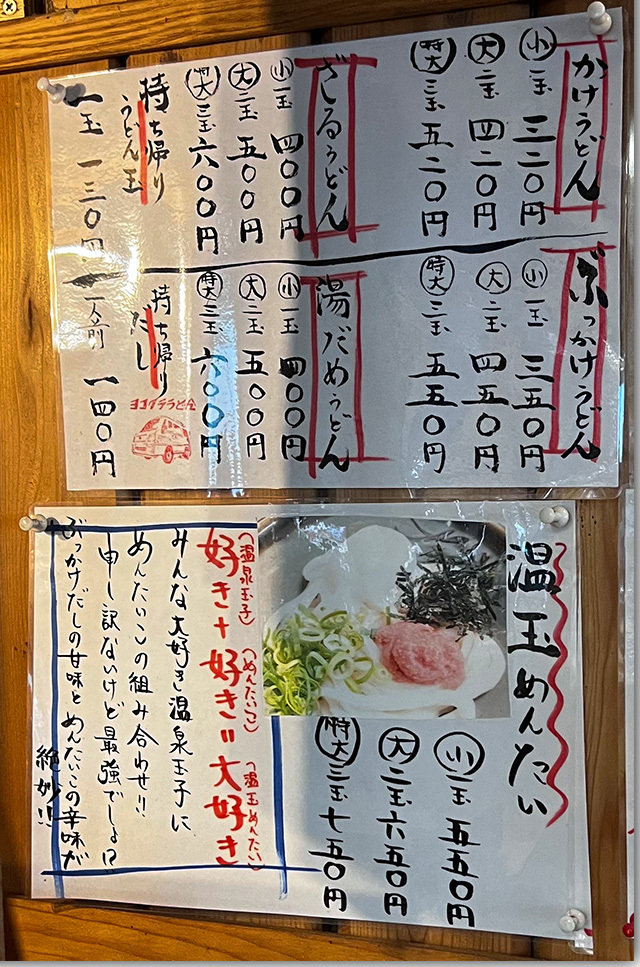 かけうどん
小 一玉 三二〇円
大 二玉 四二〇円
特大 三玉 五二〇円
ざしるうどん
小 一玉 四〇〇円
大 二玉 五〇〇円
特大 三玉 六〇〇円
持ち帰り
うどん玉
一玉 一三〇円
ぶっかけうどん
小 一玉 三五〇円
大 二玉 四五〇円
特大 三玉 五五〇円
湯だめうどん
小 一玉 四〇〇円
大 二玉 五〇〇円
特大 三玉 六〇〇円
持ち帰り
だし
一人前 一四〇円
温玉めんたい
小 一玉 五五〇円
大 二玉 六五〇円
特大 三玉 七五〇円
(温泉玉子) (めんたいこ) (温玉めんたい)
好き+好き=大好き
みんな大好き温泉玉子に
めんたいこの組み合わせ!!
申し訳ないけど最強でしょ!?
ぶっかけだしの甘味とめんたいこの辛味が
絶妙!!